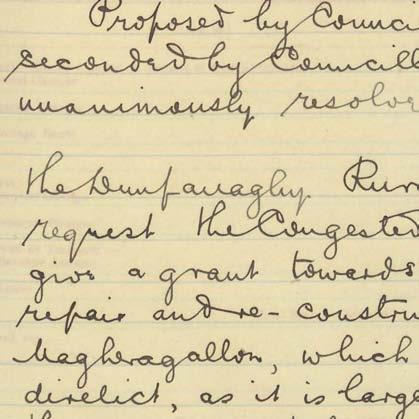 Proposed by Counci
seconded by Councill
unanimously resolve
the Dunfanaghy Rur
request the Congested
give a grant towards
repair and re- constru
Magheragallon, which
direlict, as it is larg